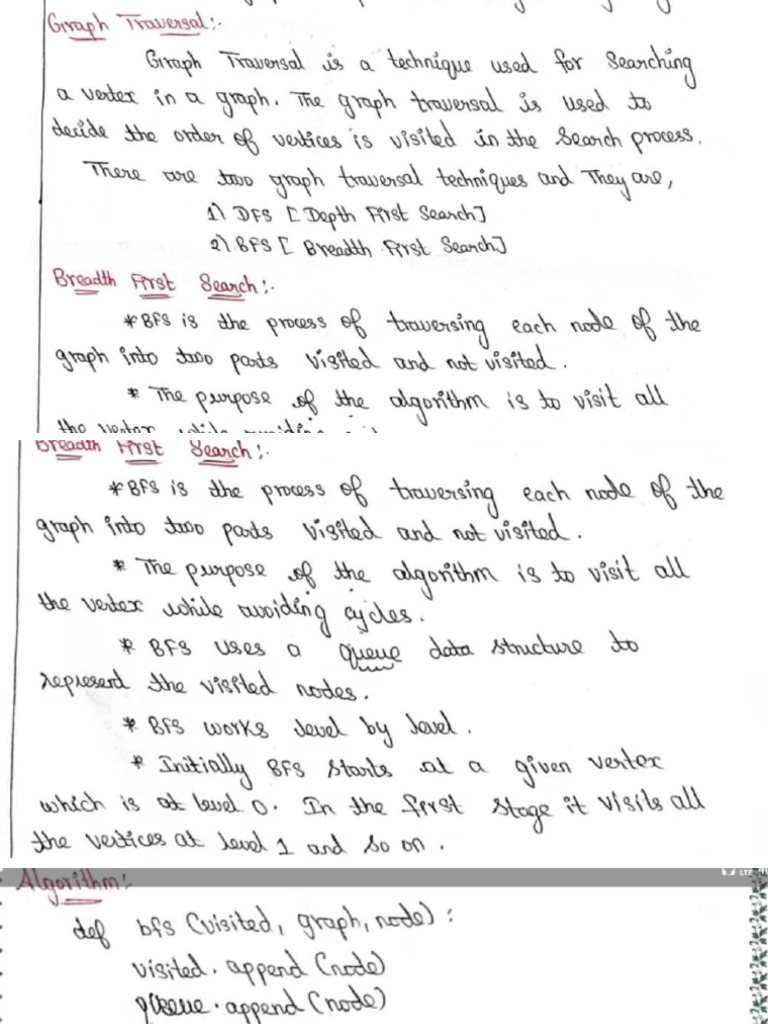 Graph Traversal:-
Graph Traversal is a technique used for searching
a vertex in a graph. The graph traversal is used to
decide the order of vertices is visited in the search process.
There are two graph traversal techniques and They are,
1) DFS [Depth First Search]
2) BFS [Breadth First Search]
Breadth First Search:-
* BFS is the process of traversing each node of the
graph into two parts visited and not visited.
* The purpose of the algorithm is to visit all
the vertex while avoiding
Breadth First Search:-
* BFS is the process of traversing each node of the
graph into two parts visited and not visited.
* The purpose of the algorithm is to visit all
the vertex while avoiding cycles.
* BFS uses a queue data structure to
represend the visited nodes.
* BFS works level by level.
* Initially BFS starts at a given vertex
which is at level 0. In the first stage it visits all
the vertices at level 1 and so on.
LTE
Algorithm:-
def bfs (visited, graph, node):
visited.append (node)
queue.append (node)